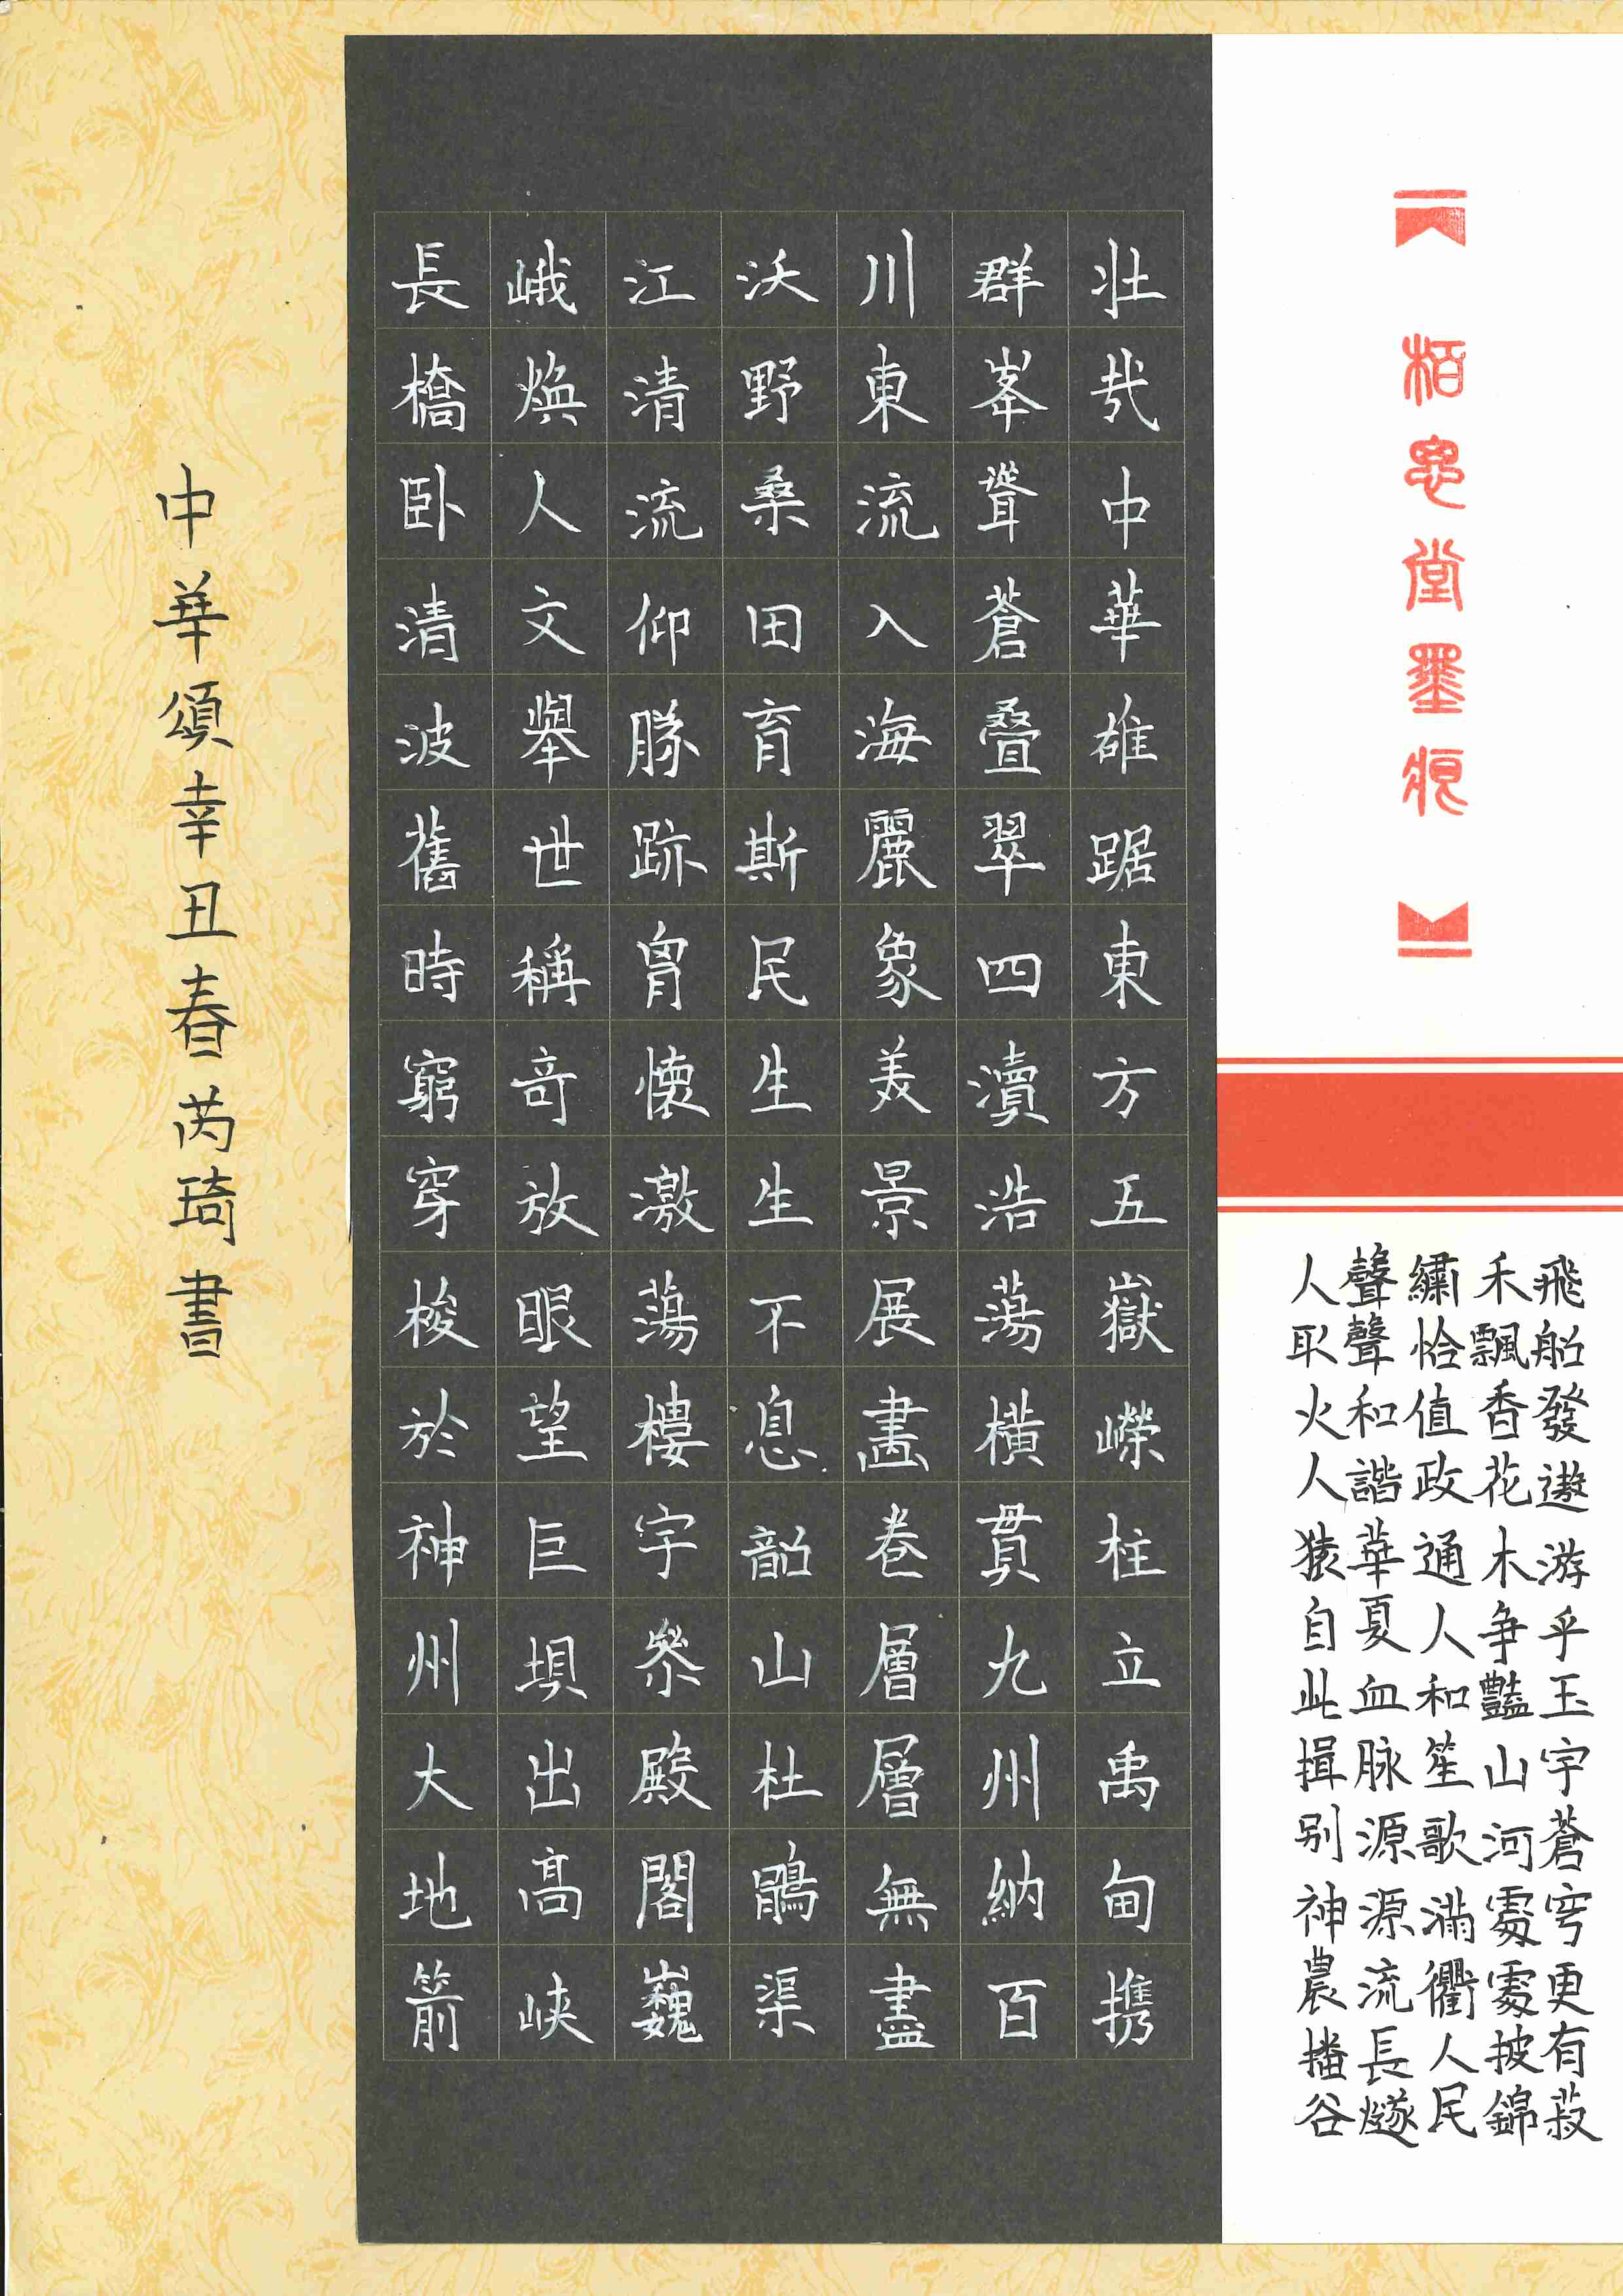 栢思堂墨痕
飛船發遨游乎玉宇蒼穹更有菽
禾飄香花木争豔山河處處披錦
繡恰值政通人和笙歌滿衢人民
聲聲和諧華夏血脉源源流長燧
人取火人猿自此揖别神農播谷
壯哉中華雄踞東方五嶽嶸柱立禹甸携
群峯聳蒼叠翠四瀆浩蕩横貫九州納百
川東流入海麗象美景展畫卷層層無盡
沃野桑田育斯民生生不息韶山杜鵑渠
江清流仰勝跡胷懷激蕩樓宇祭殿閣巍
峨焕人文舉世稱奇放眼望巨垻出高峽
長橋卧清波舊時窮穿梭於神州大地箭
中華頌辛丑春芮琦書